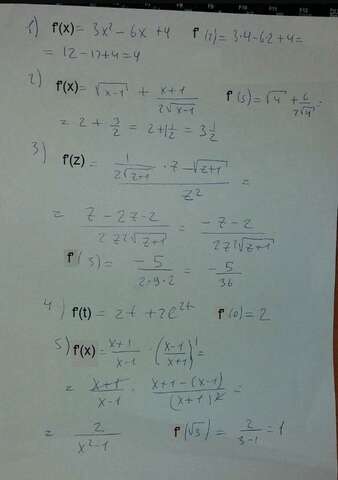 1) f'(x) = 3x² - 6x + 4   f'(2) = 3·4 - 6·2 + 4 =
= 12 - 12 + 4 = 4
2) f'(x) = √(x-1) + (x+1)/(2√(x-1))   f'(5) = √4 + 6/(2√4) =
= 2 + 3/2 = 2 + 1 1/2 = 3 1/2
3) f'(z) = (1/(2√(z+1)) · z - √(z+1))/z² =
= (z - 2z - 2)/(2z²√(z+1)) = (-z - 2)/(2z²√(z+1))
f'(3) = -5/(2·9·2) = -5/36
4) f'(t) = 2t + 2e^(2t)   f'(0) = 2
5) f'(x) = (x+1)/(x-1) · ((x-1)/(x+1))' =
= (x+1)/(x-1) · (x+1-(x-1))/(x+1)² =
= 2/(x²-1)   f'(√3) = 2/(3-1) = 1